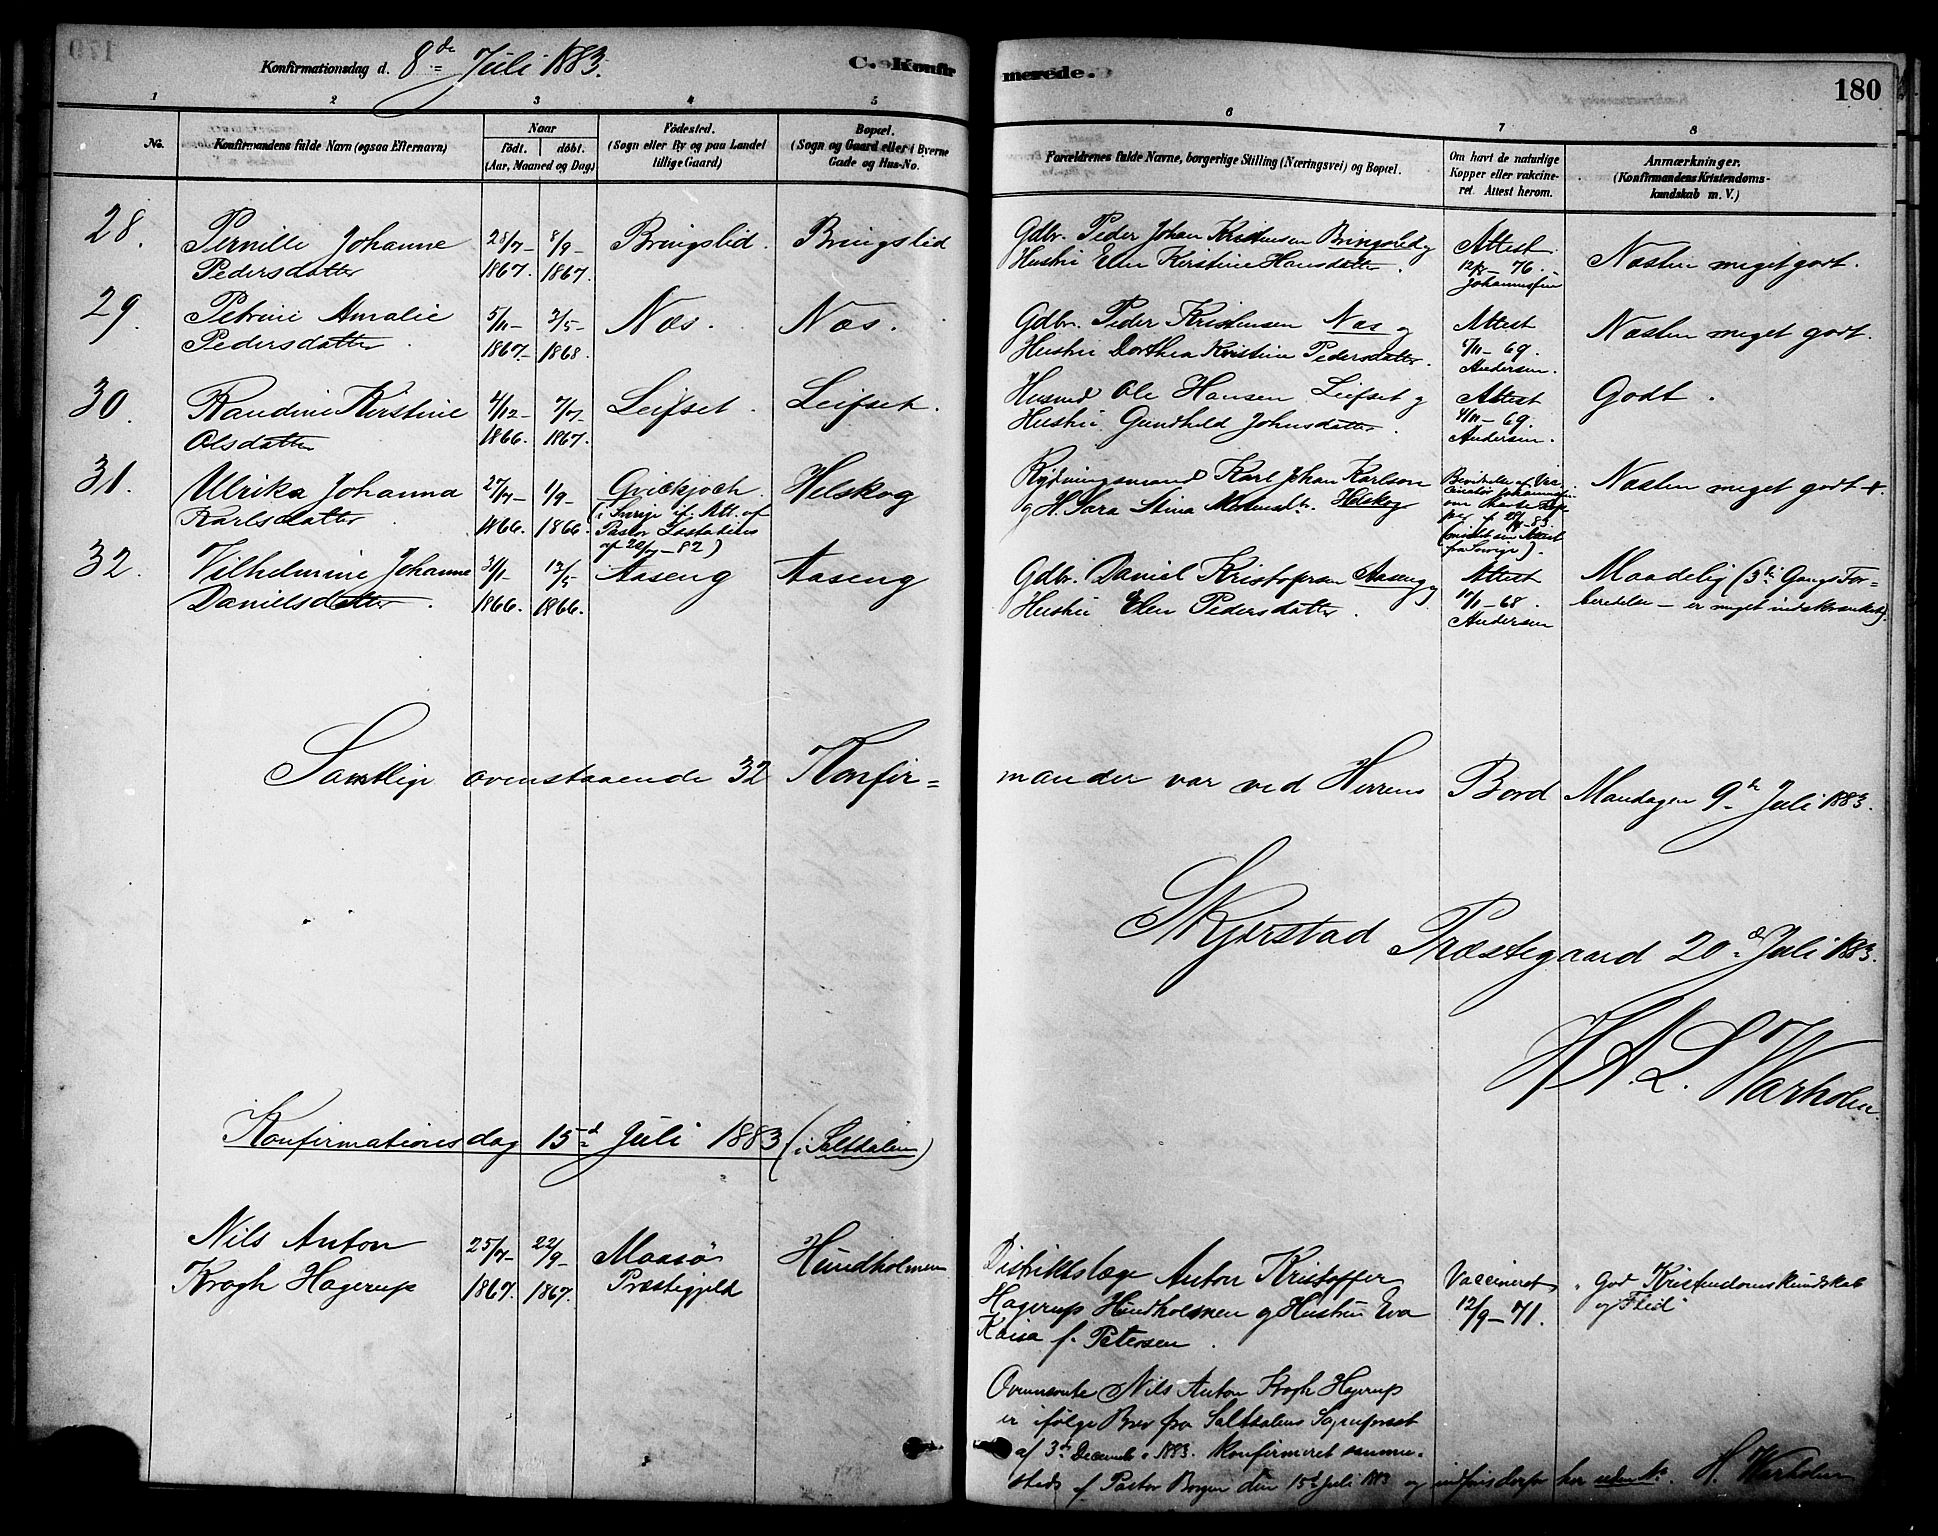 Konfirmationsdag d. 8de Juli 1883.
C. Konfirmerede.
180
1 2 3 4 5 6 7 8
No.
Konfirmandens fulde Navn (ogsaa Efternavn)
Naar
födt. döbt.
(Aar, Maaned og Dag)
Födested.
(Sogn eller By og paa Landet
tillige Gaard)
Bopæl.
(Sogn og Gaard eller i Byerne
Gade og Hus-No.
Forældrenes fulde Navne, borgerlige Stilling (Næringsvei) og Bopæl.
Om havt de naturlige
Kopper eller vakcine-
ret. Attest herom.
Anmærkninger.
(Konfirmandens Kristendoms-
kundskab m. V.)
28. Pernille Johanne 28/7- 8/9- Bringslid. Bringslid Gdbr. Peder Johan Kristensen Bringslid og Attest Næsten meget godt.
Pedersdatter 1867. 1867. Hustru Elen Kerstine Hansdatter. 76.
29. Petrine Amalie 5/11- 3/5- Næs. Næs. Gdbr. Peder Kristensen Næs og Attest Næsten meget godt.
Pedersdatter. 1867. 1868. Hustru Dorthea Kerstine Pedersdatter. 69.
Andersen.
30. Randine Kerstine 1866. 1867. Leifset. Leifset. Husmd Ole Hansen Leifset og Attest Godt.
Olsdatter Hustru Gundhild Johnsdatter. 4/11-69.
Andersen.
31. Ulrika Johanna 27/7- 1/9- Helskog Rydningsmand Karl Johan Karlson Næsten meget godt
Karlsdatter. 1866. 1866. (i Sverige if. Att. af og H. Sara Stina Helskog
Pastor
af 20/7-82)
32. Vilhelmine Johanne 3/1- 12/5- Aaseng Aaseng Gdbr. Daniel Kristofersen Aaseng og Attest Maadelig (3die Gangs For-
Danielsdatter. 1866. 1866. Hustru Elen Pedersdatter. 68. beredelse - er meget indskrænket).
Andersen
Samtlige ovenstaaende 32 Konfir=
mander var ved Herrens Bord Mandagen 9de Juli 1883.
Skjerstad Præstegaard 20de Juli 1883.
H A. L. Warholm.
Konfirmationsdag 15d Juli 1883 (i Saltdalen)
Nils Anton 25/7- 22/9- Maasö Hundholmen Distriktslæge Anton Kristoffer Vaccineret "God Kristendomskundskab
Krogh Hagerup 1867. 1867. Præstegjeld Hagerup Hundholmen og Hustru Eva 12/9-71. og Flid"
Kaisa f. Petersen.
Ovennævnte Nils Anton Krogh Hagerup
er ifølge Brev fra Saltdalens Sognepræst
af 3de December 1883. konfirmeret samme-
steds af Pastor Borgen den 15d Juli 1883 og indføres derfor her uden No. H. Warholm